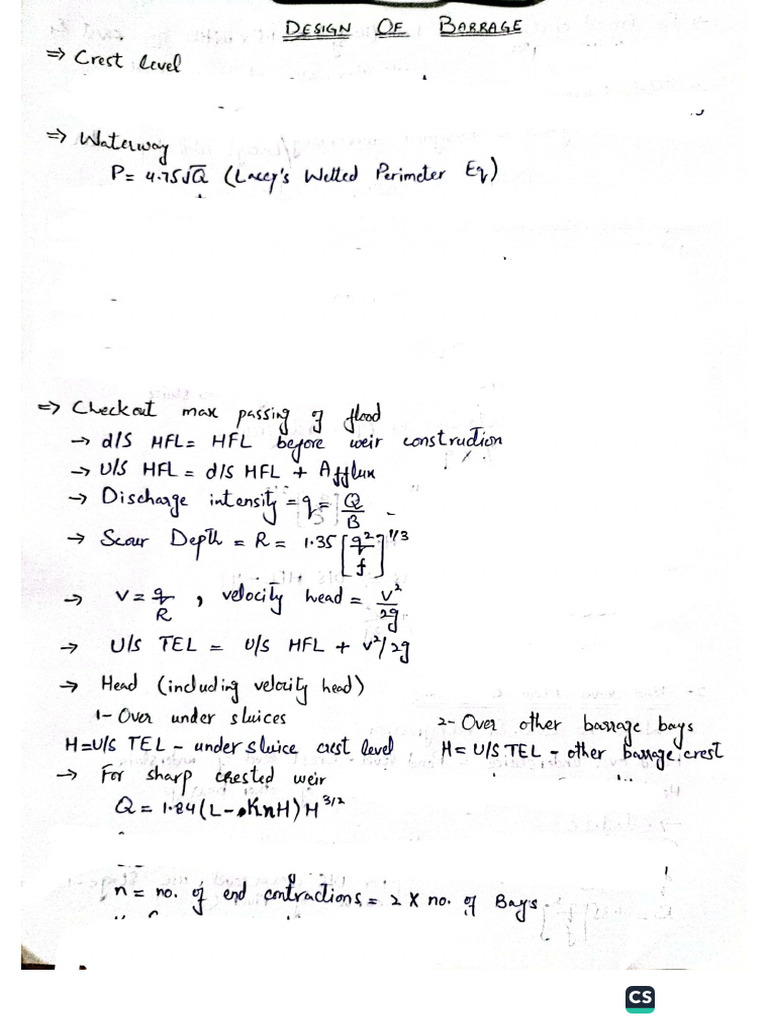 DESIGN OF BARRAGE
⇒ Crest level
⇒ Waterway
P = 4.75√Q (Lacey's Wetted Perimeter Eq)
⇒ Checkout max passing of flood
→ d/S HFL = HFL before weir construction
→ U/S HFL = d/S HFL + Afflux
→ Discharge intensity = q = Q/B
→ Scour Depth = R = 1.35 [q²/f]^1/3
→ V = q/R , velocity head = V²/2g
→ U/S TEL = U/S HFL + V²/2g
→ Head (including velocity head)
1- Over under sluices
2- Over other barrage bays
H = U/S TEL - under sluice crest level
H = U/S TEL - other barrage crest
→ For sharp crested weir
Q = 1.84 (L - KnH) H^3/2
n = no. of end contractions = 2 X no. of Bays.
CS